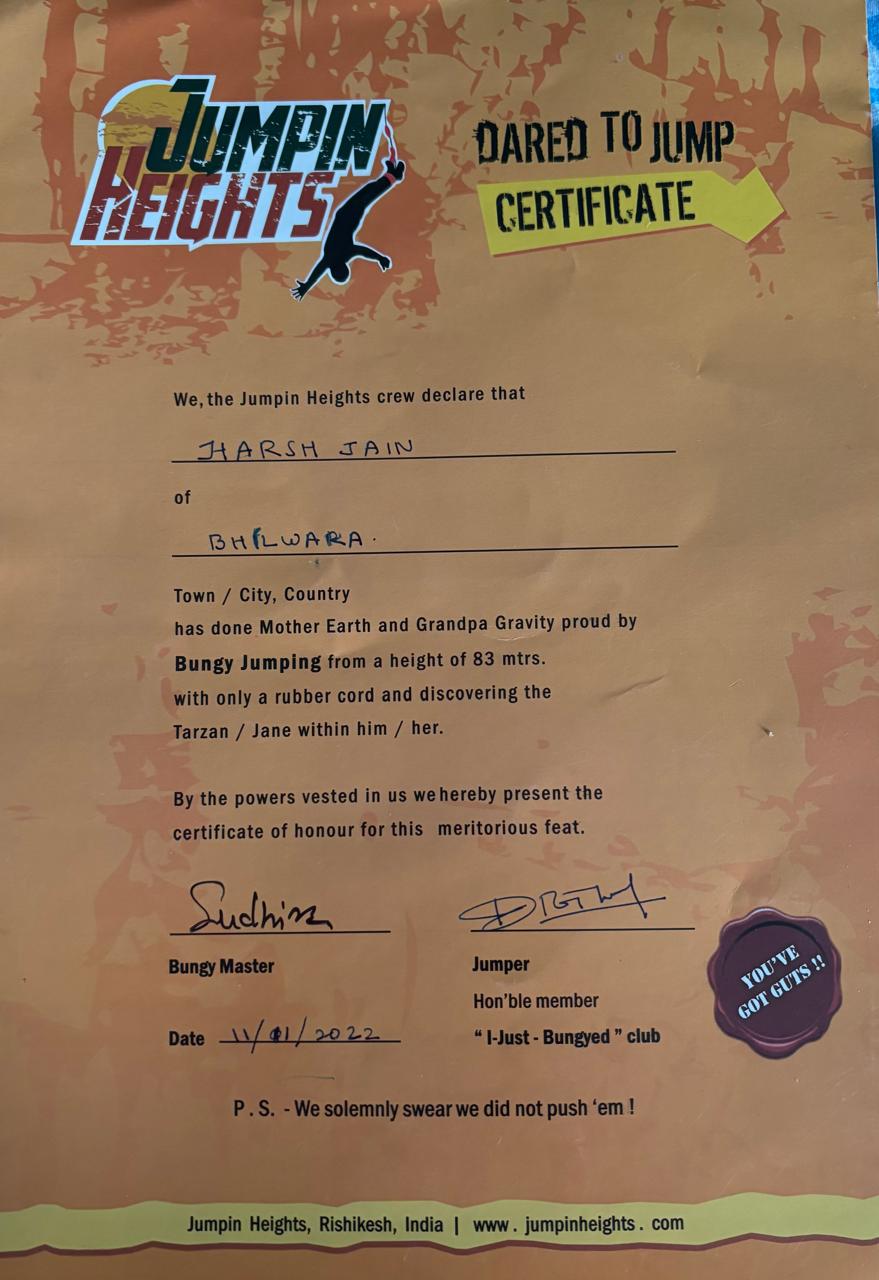 JUMPIN
HEIGHTS
DARED TO JUMP
CERTIFICATE
We, the Jumpin Heights crew declare that
HARSH JAIN
of
BHILWARA.
Town / City, Country
has done Mother Earth and Grandpa Gravity proud by
Bungy Jumping from a height of 83 mtrs.
with only a rubber cord and discovering the
Tarzan / Jane within him / her.
By the powers vested in us we hereby present the
certificate of honour for this meritorious feat.
Sudhir
Bungy Master
Jumper
Hon'ble member
Date 11/01/2022
" I-Just - Bungyed " club
YOU'VE
GOT GUTS !!
P.S. - We solemnly swear we did not push 'em !
Jumpin Heights, Rishikesh, India | www. jumpinheights. com